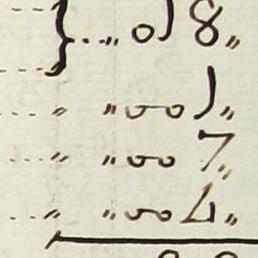 } ... „ 01 8 „
... „ „ 001 „
... „ „ 00 7 „
... „ „ 00 4 „